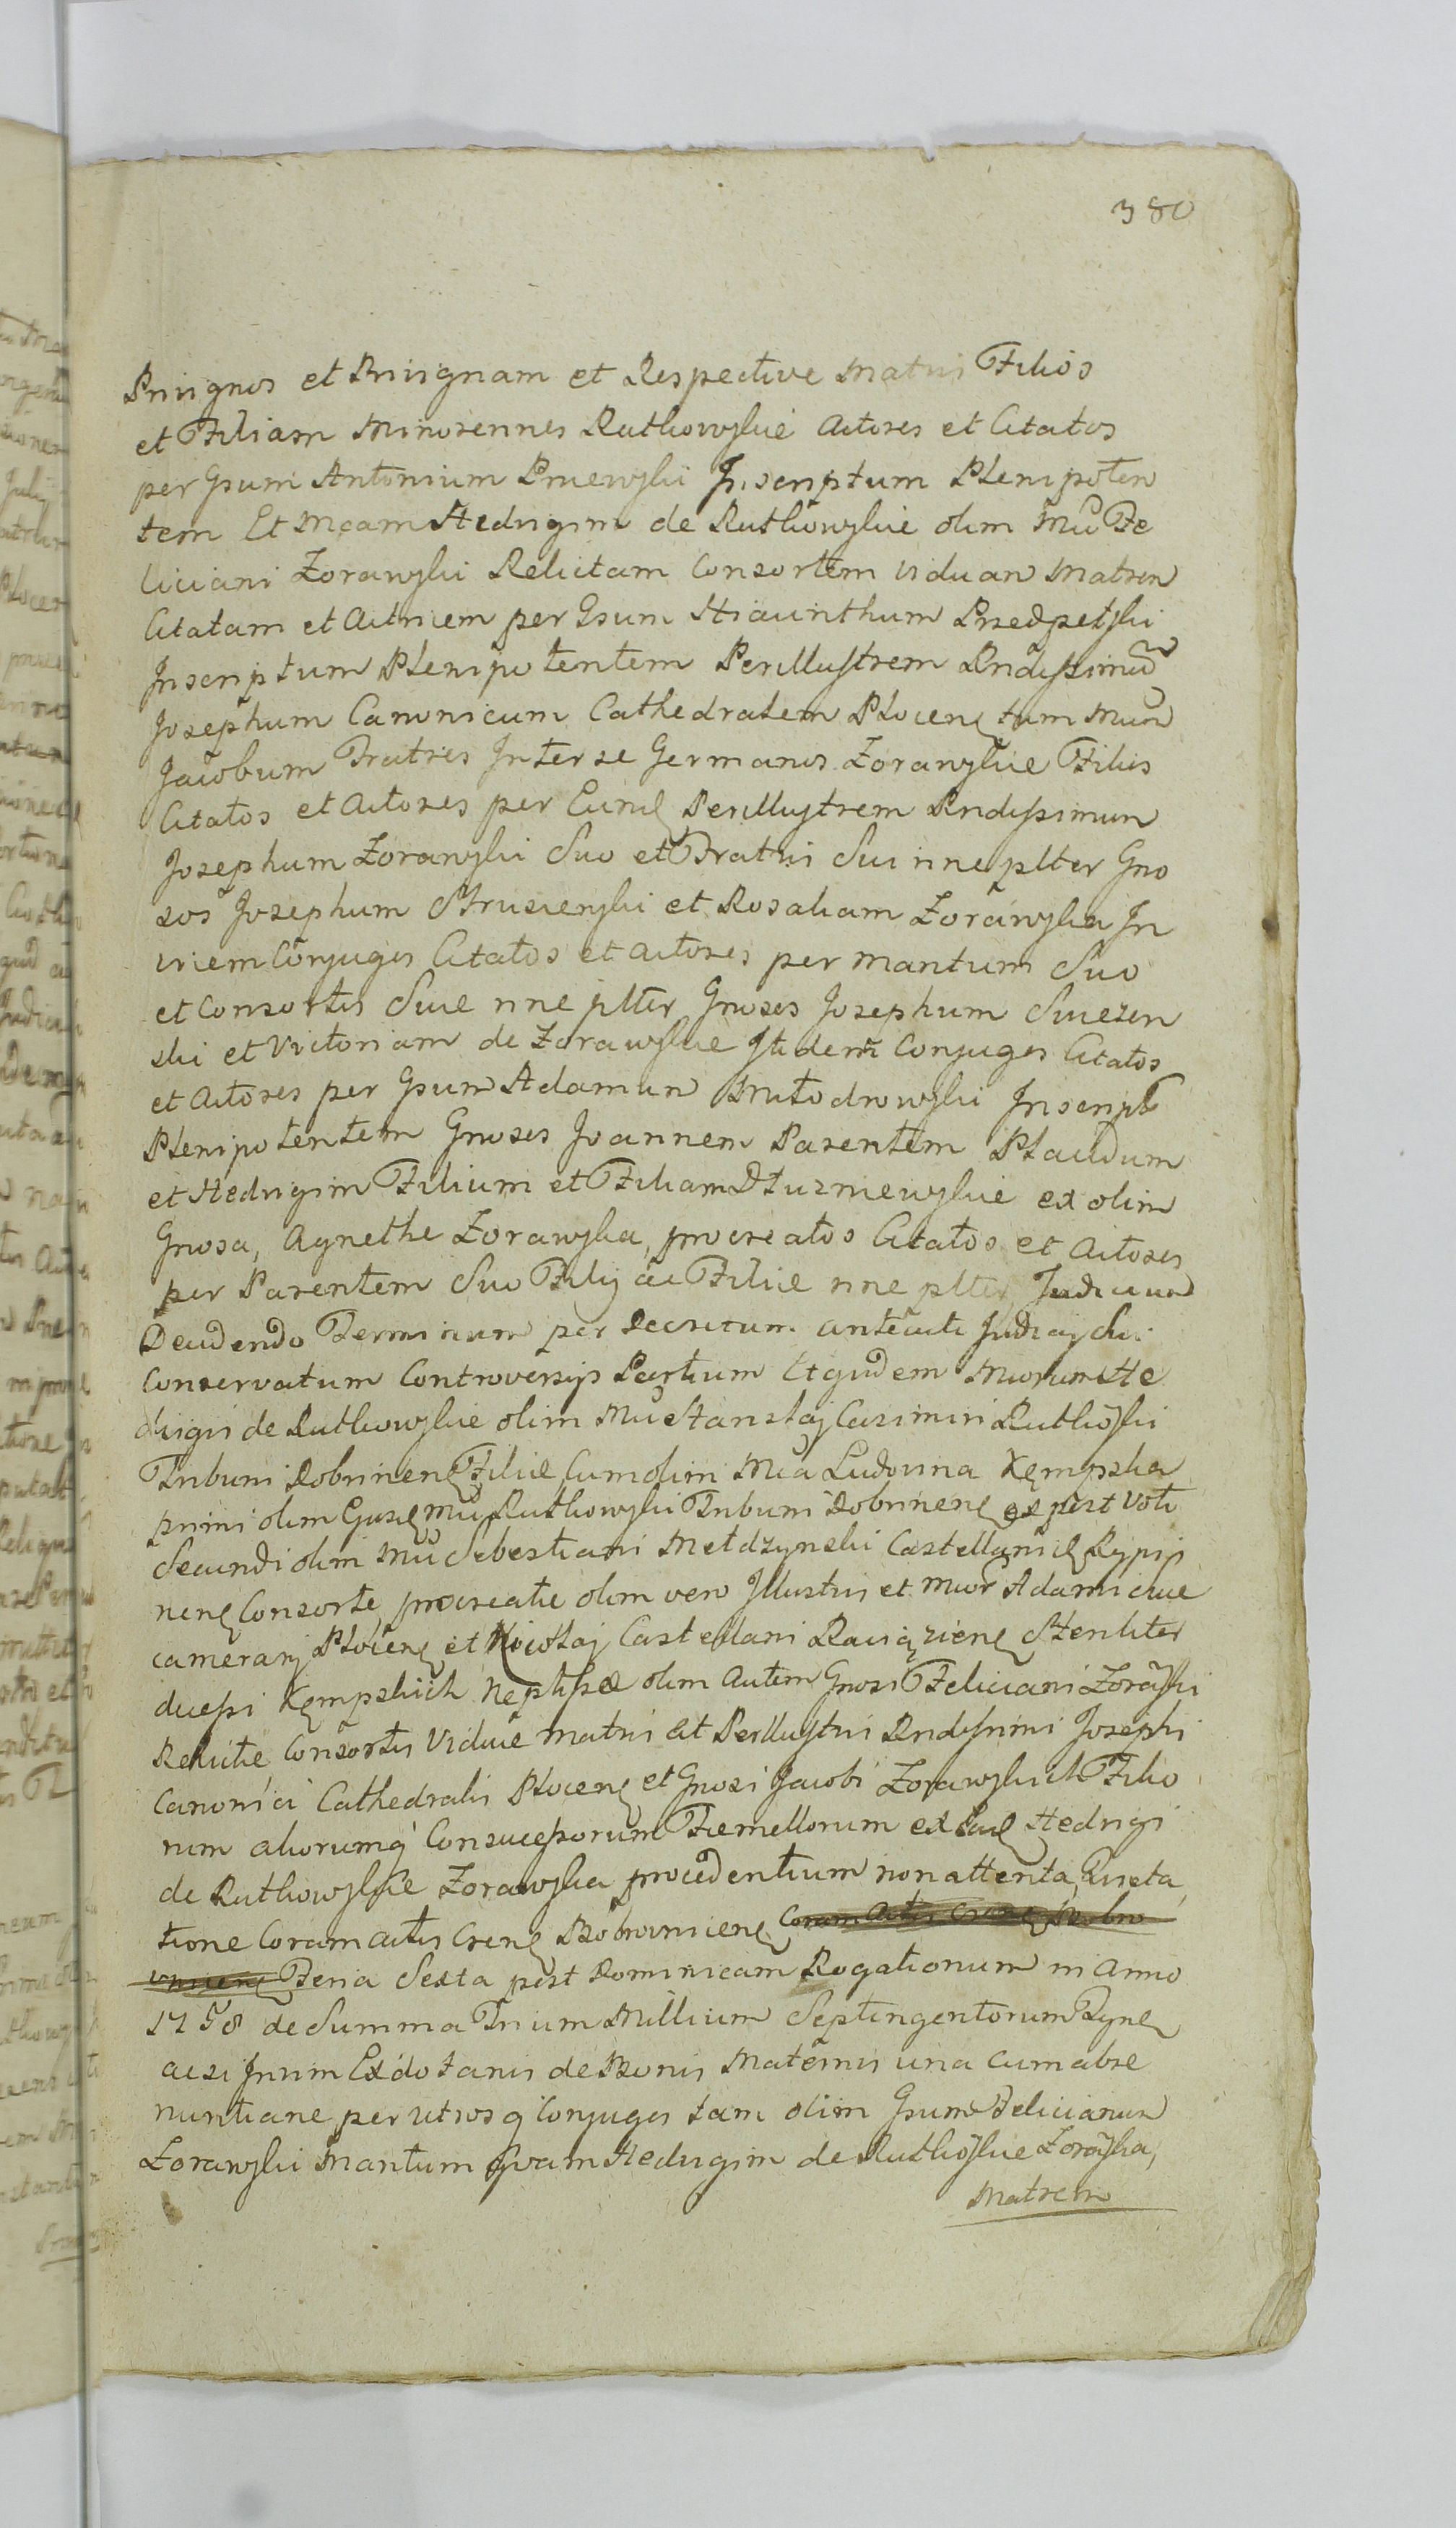 380
Privignos et Privignam et Respective Matris Filios
et Filiam Minorennes Rutkowskie Actores et Citatos
per Gsum Antonium Inscriptum Plenipoten
tem Et Mcam Hedvigim de Rutkowskie olim Mci Fe
liciani Zorawski Relictam Consortem viduam Matrem
Citatam et Actricem per Gsum Hiacinthum Przedpelski
Inscriptum Plenipotentem Perillustrem Rndissimum
Josephum Canonicum Cathedralem Plocens tum Mcum
Jacobum Fratres Inter se Germanos Zorawskie Filios
Citatos et Actores per Eund Perillustrem Rndissimum
Josephum Zorawski Suo et Fratris Sui nne plter Gno
sos Josephum Strusienski et Rosaliam Zorawska In
vicem Conjuges Citatos et Actores per Maritum Suo
et Consortis Suæ nne plter Gnosos Josephum
ski et Victoriam de Zorawskie Itidem Conjuges Citatos
et Actores per Gsum Adamum Mlodrowski Inscript
Plenipotentem Gnosos Joannem Parentem Placidum
et Hedvigim Filium et Filiam Dluzniewskie ex olim
Gnosa, Agnethe Zorawska, procreatos Citatos et Actores
per Parentem Suo Filij ac Filiæ nne plter Judicium
Decidendo Terminum per Decretum anteacti Judicij sui
Conservatum Controversijs Partium Et quidem Mcorum He
dvigis de Rutkowskie olim Mci Stanislaj Casimiri Rutkoski
Tribuni Dobrinens Filiæ, Cum olim Mca Ludovina Kempska
primi olim Mci Rutkowski Tribuni Dobrinens ex post Voti
Secundi olim Mci Sebestiani Metdzynski Castellanid Rypin
nens Consorte, procreatæ olim vero Illustris et Mcor Adami suc
camerarij Plocens et Nicolaj Castellani Raciąziens Steriliter
dcessi Kempskich Neptissæ olim Autem Gnosi Feliciani Zoraski
Relictæ Consortis Viduæ Matris At Perillustris Rndissimi Josephi
Canonici Cathedralis Plocens et Gnosi Jacobi Zorawskich Filio
rum aliorumq Consuccessorum Fæmellorum ex Ead Hedvigi
de Rutkowskie Zorawska procedentium non attenta Quieta
tione Coram Actis Crens Bobrownicens Coram Actis Crens Bobro
wnicens Feria Sexta post Dominicam Rogationum in Anno
1758 de Summa Trium Millium Septingentorum
ac si Jurium Exdotanis de Bonis Maternis una cum abre
nuntiane per utrosq Conjuges tam olim Gsum Felicianum
Zorawski Maritum Qvam Hedvigim de Rutkoskie Zoraska,
Matrem